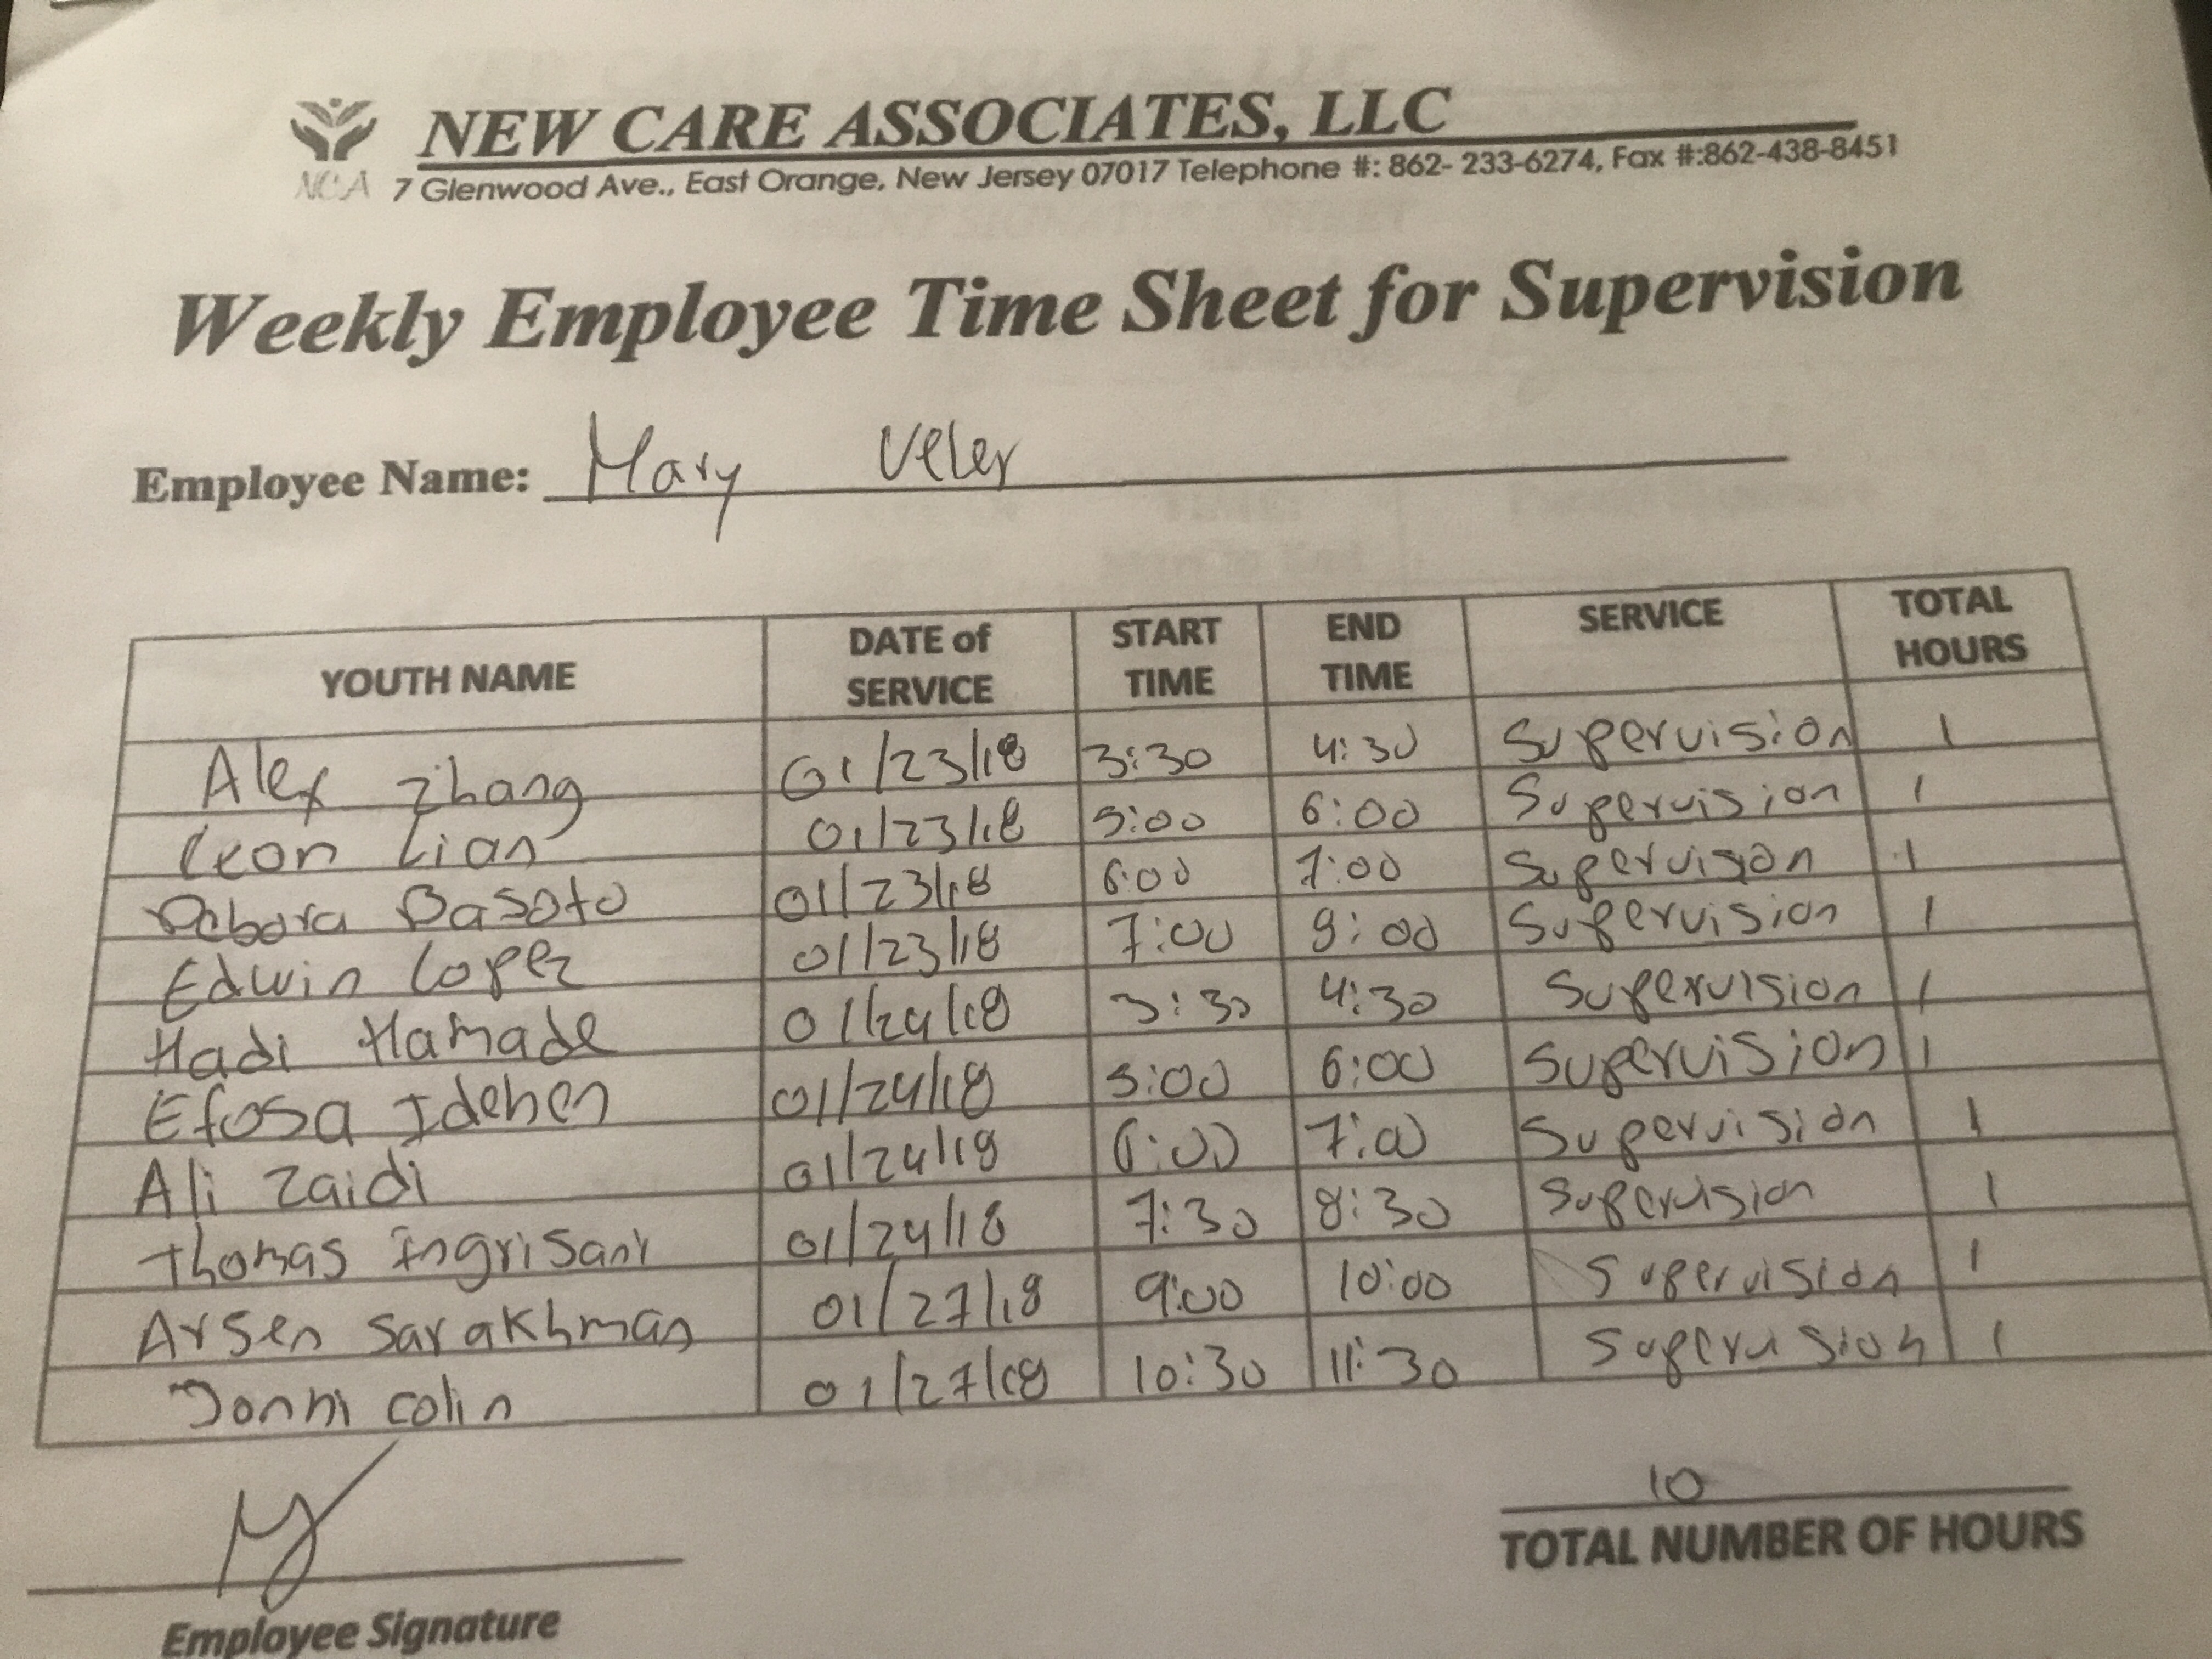 NEW CARE ASSOCIATES, LLC
NCA 7 Glenwood Ave., East Orange, New Jersey 07017 Telephone #: 862- 233-6274, Fax #:862-438-8451
Weekly Employee Time Sheet for Supervision
Employee Name: Mary
YOUTH NAME DATE of SERVICE START TIME END TIME SERVICE TOTAL HOURS
Alex Zhang 01/23/18 3:30 4:30 Supervision 1
Leon Lian 01/23/18 5:00 6:00 Supervision 1
Debora Basoto 01/23/18 6:00 7:00 Supervision 1
Edwin Lopez 01/23/18 7:00 8:00 Supervision 1
Hadi Hamade 01/24/18 3:30 4:30 Supervision 1
Efosa Idehen 01/24/18 5:00 6:00 Supervision 1
Ali Zaidi 01/24/18 6:00 7:00 Supervision 1
Thomas ingrisani 01/24/18 7:30 8:30 Supervision 1
Arsen sarakhman 01/27/18 9:00 10:00 Supervision 1
colin 01/27/18 10:30 11:30 Supervision 1
10
Employee Signature TOTAL NUMBER OF HOURS